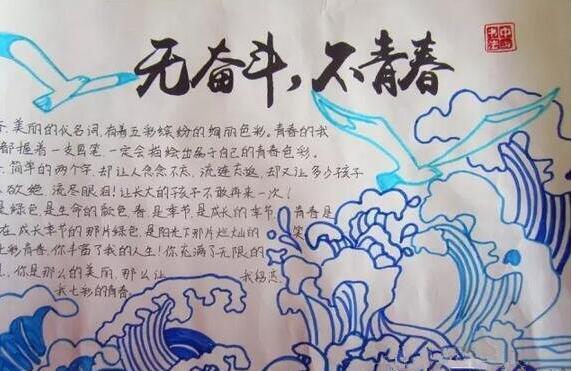 无奋斗，不青春
中国
书法
春，美丽的代名词，有着五彩缤纷的绚丽色彩。青春的我
都握着一支画笔，一定会描绘出属于自己的青春色彩。
，简单的两个字，却让人念念不忘，流连忘返，却又让多少孩子
欲绝，流尽眼泪！让长大的孩子不敢再来一次！
是绿色，是生命的颜色，春，是季节，是成长的季节，青春是
在成长季节的那片绿色，是阳光下那片灿烂的 笑
七彩青春，你丰富了我的人生！你充满了无限的
，你是那么的美丽，那么让 我
我七彩的青春